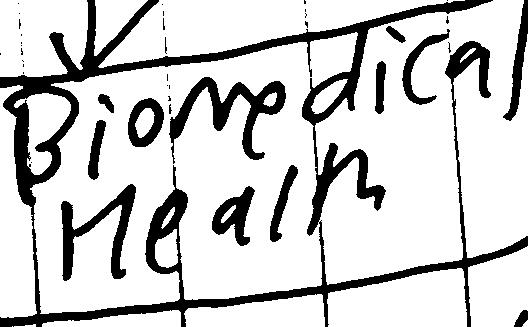 Biomedical
Health